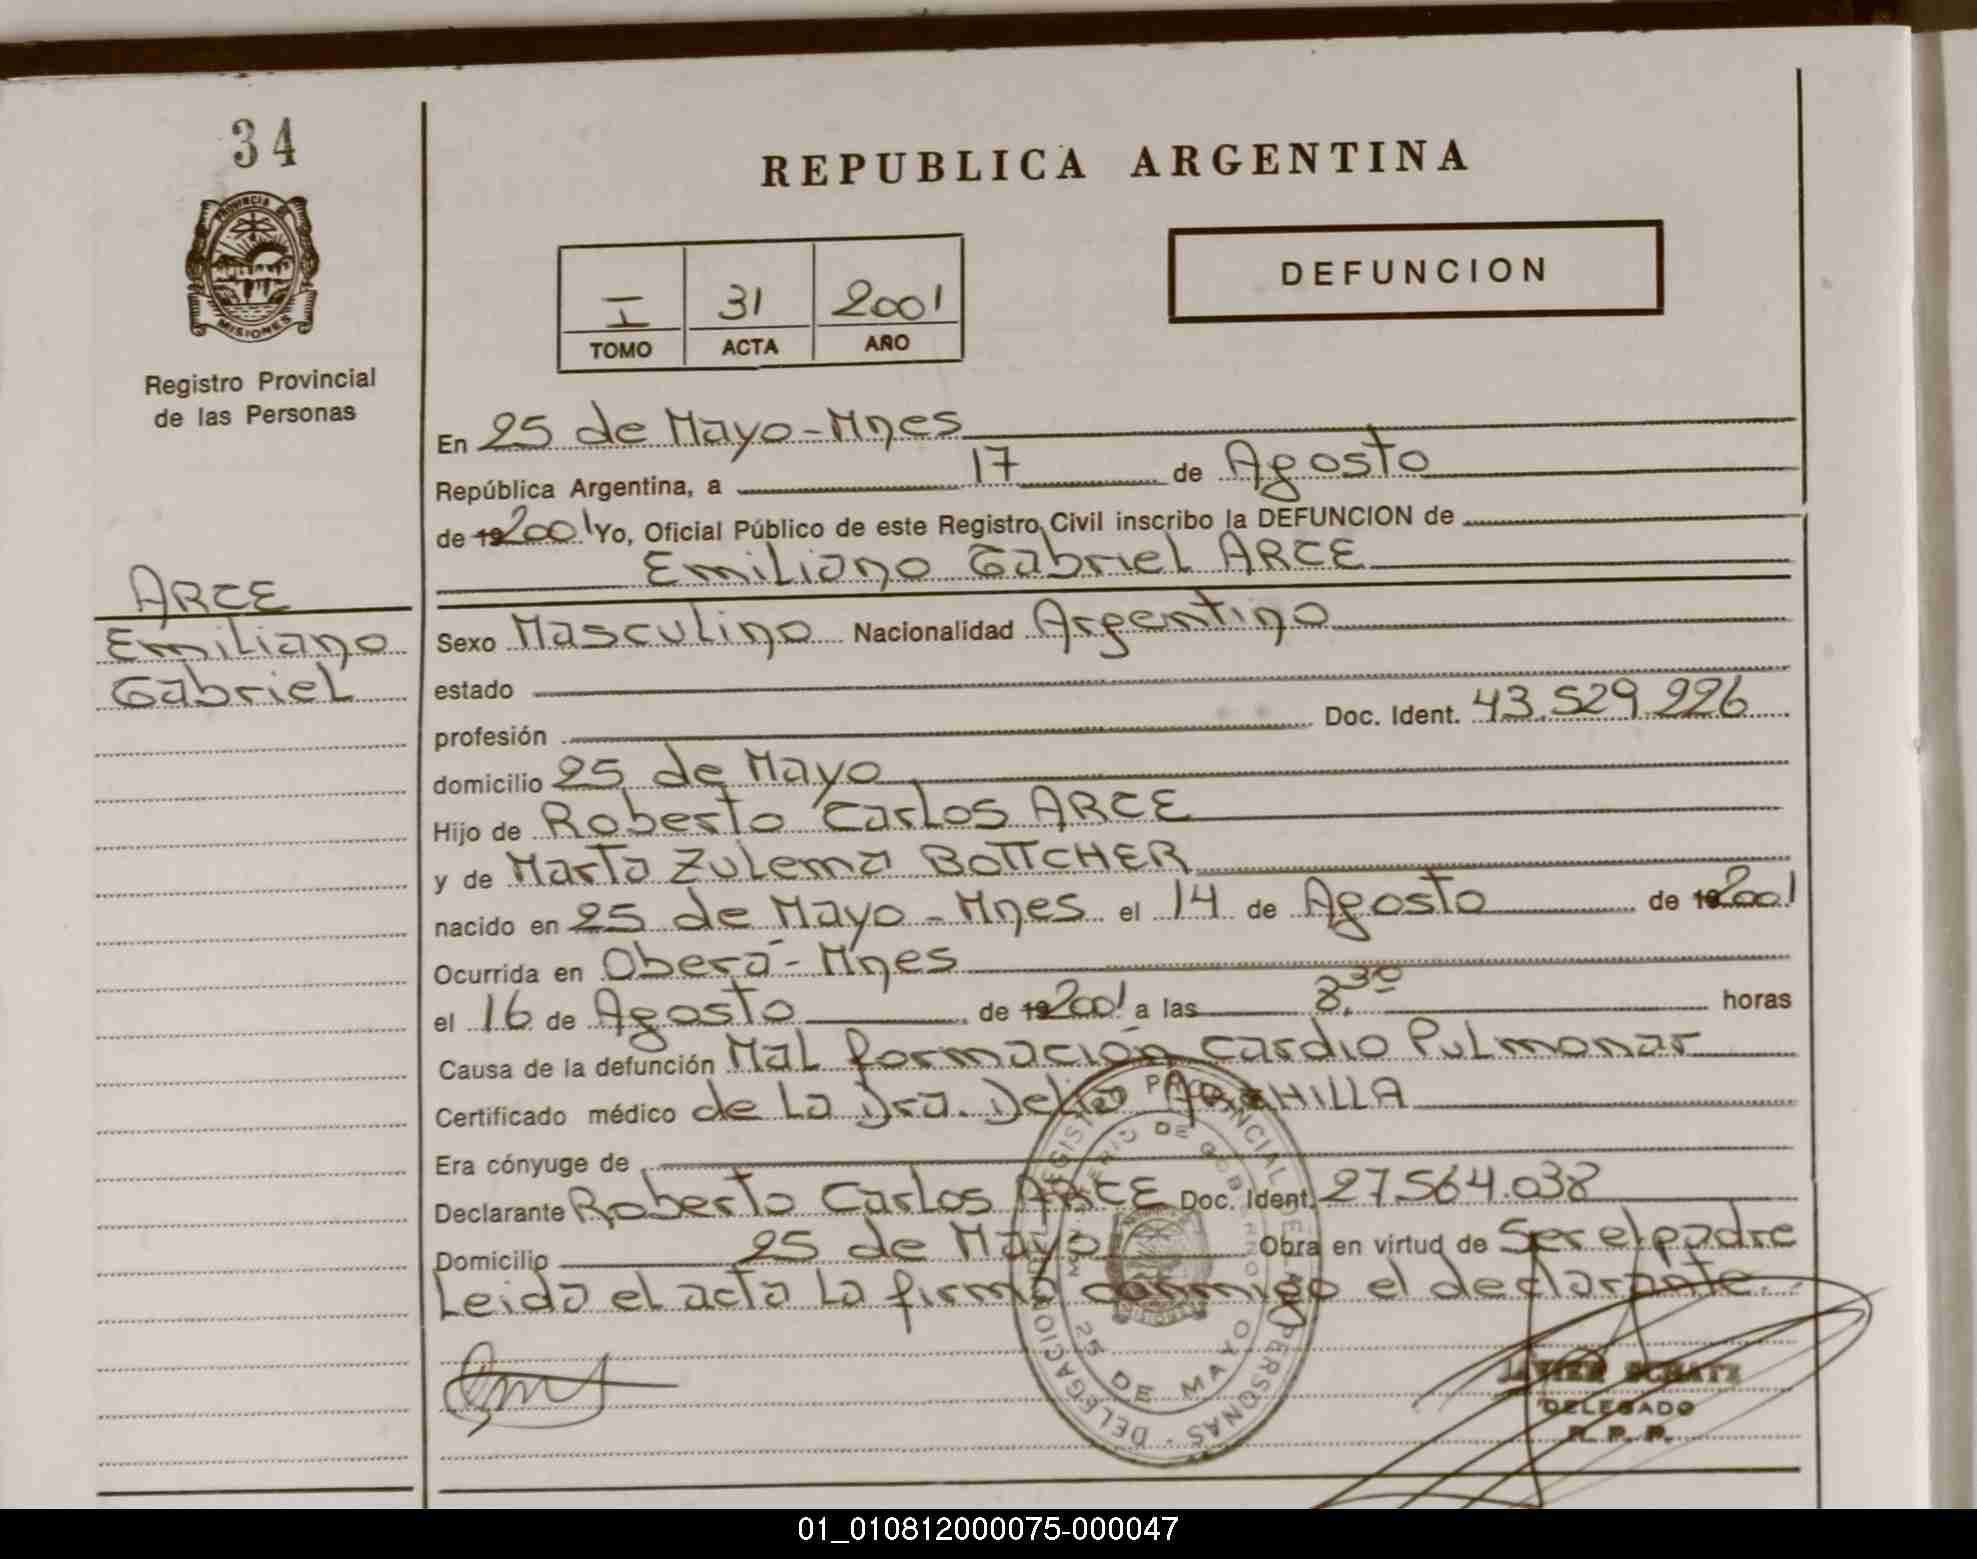 34
PROVINCIA DE
MISIONES
Registro Provincial
de las Personas
ARCE
Emiliano
Gabriel
REPUBLICA ARGENTINA
I 31 2001
TOMO ACTA AÑO
DEFUNCION
En 25 de Mayo-Mnes
República Argentina, a 17 de Agosto
de 19 2001 Yo, Oficial Público de este Registro Civil inscribo la DEFUNCION de
Emiliano Gabriel ARCE
Sexo Masculino Nacionalidad Argentino
estado
profesión Doc. Ident. 43.529.226
domicilio 25 de Mayo
Hijo de Roberto Carlos ARCE
y de Marta Zulema BOTTCHER
nacido en 25 de Mayo - Mnes el 14 de Agosto de 19 2001
Ocurrida en Oberá - Mnes
el 16 de Agosto de 19 2001 a las 8,30 horas
Causa de la defunción Mal formación cardio Pulmonar
Certificado médico de la Dra. Delia
Era cónyuge de
Declarante Roberto Carlos ARCE Doc. Ident. 27.564.038
Domicilio 25 de Mayo Obra en virtud de Ser el padre
Leida el acta la firma conmigo el declarante.
REGISTRO PROVINCIAL DE LAS PERSONAS - DELEGACION
MINISTERIO DE GOBIERNO
25 DE MAYO
JAVIER SCHATZ
DELEGADO
R. P. P.
01_010812000075-000047